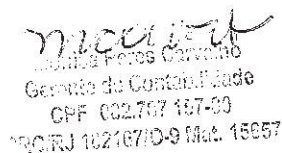 Peres Carvalho
Gerente de Contabilidade
CPF 002.707 157-00
CRC/RJ 102167/O-9 Mat. 15657